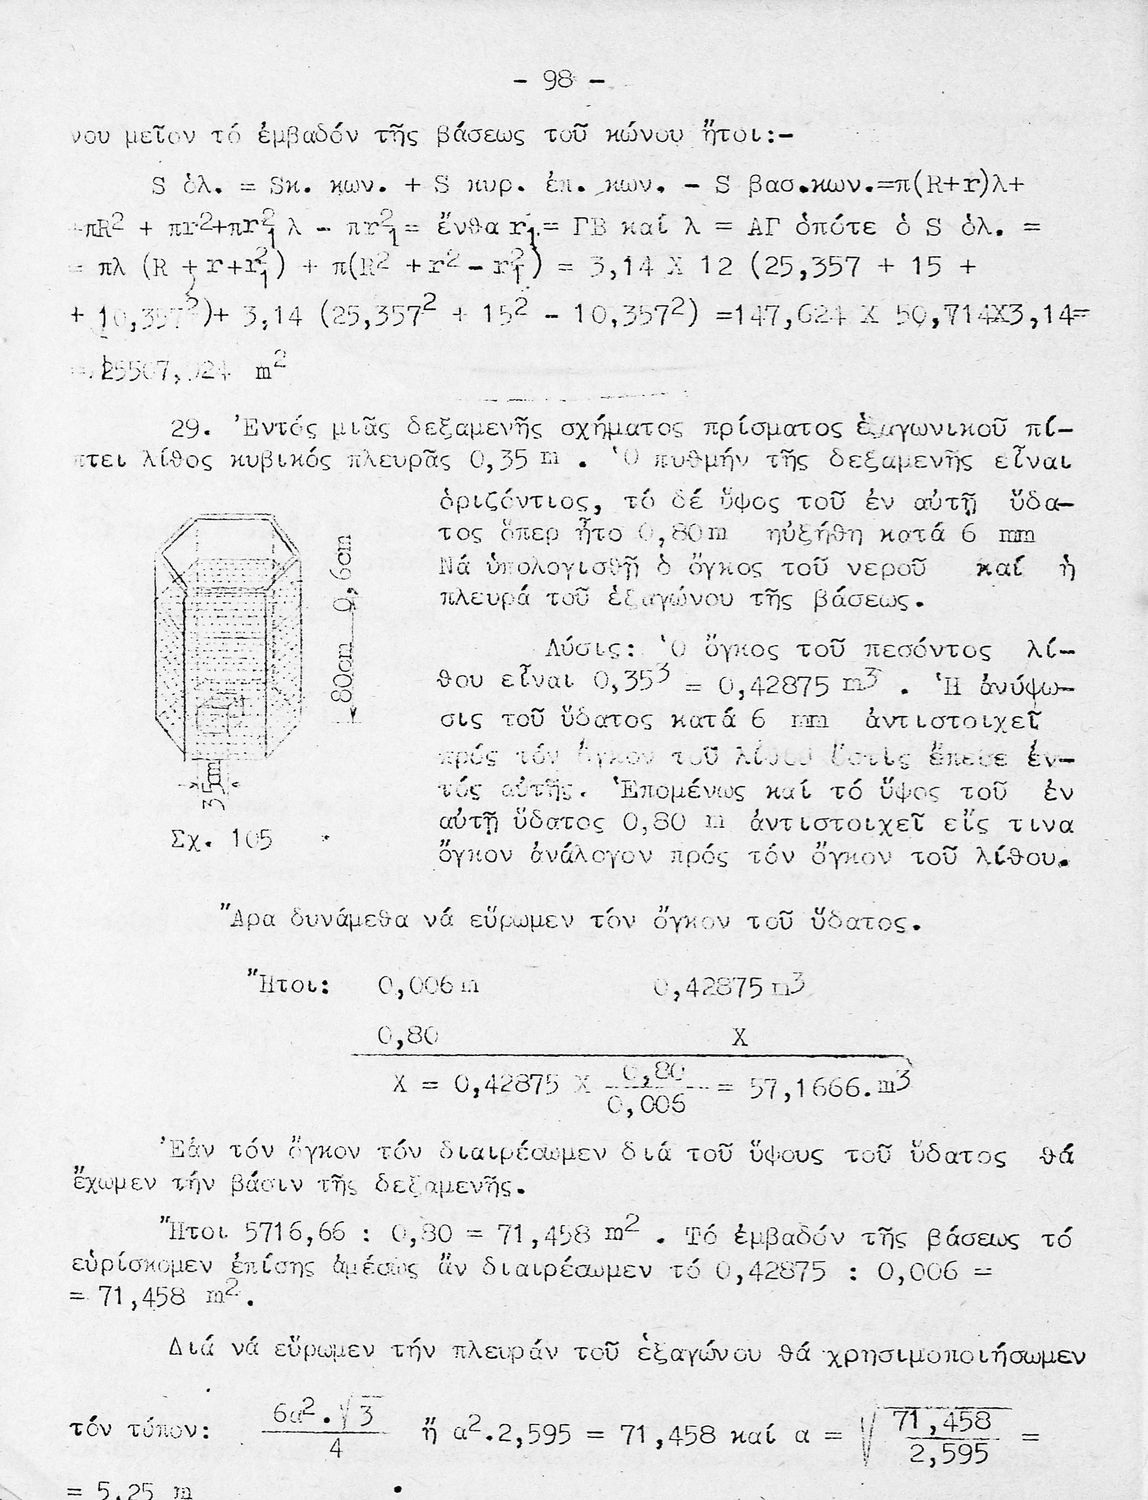 - 98 -
νου μεῖον τό ἐμβαδόν τῆς βάσεως τοῦ κώνου ἤτοι:-
S ὁλ. = Sκ. κων. + S κυρ. ἐπ. κων. - S βασ.κων.=π(R+r)λ+
+πR² + πr²+πr₁² λ - πr₁² = ἔνθα r₁ = ΓΒ καί λ = ΑΓ ὁπότε ὁ S ὁλ. =
= πλ (R + r+r₁²) + π(R² + r² - r₁²) = 3,14 X 12 (25,357 + 15 +
+ 10,357²)+ 3,14 (25,357² + 15² - 10,357²) =147,624 X 50,714X3,14=
m²
29. Ἐντός μιᾶς δεξαμενῆς σχήματος πρίσματος ἑξαγωνικοῦ πί-
πτει λίθος κυβικός πλευρᾶς 0,35 m . Ὁ πυθμήν τῆς δεξαμενῆς εἶναι
ὁριζόντιος, τό δέ ὕψος τοῦ ἐν αὐτῇ ὕδα-
τος ὅπερ ἦτο 0,80m ηὐξήθη κατά 6 mm
Νά ὑπολογισθῇ ὁ ὄγκος τοῦ νεροῦ καί ἡ
πλευρά τοῦ ἑξαγώνου τῆς βάσεως.
Λύσις: Ὁ ὄγκος τοῦ πεσόντος λί-
θου εἶναι 0,35³ = 0,42875 m³ . Ἡ ἀνύψω-
σις τοῦ ὕδατος κατά 6 mm ἀντιστοιχεῖ
πρός τόν ὄγκον τοῦ λίθου ὅστις ἔπεσε ἐν-
τός αὐτῆς. Ἑπομένως καί τό ὕψος τοῦ ἐν
αὐτῇ ὕδατος 0,80 m ἀντιστοιχεῖ εἰς τινα
ὄγκον ἀνάλογον πρός τόν ὄγκον τοῦ λίθου.
0,6cm
80cm
35m
Σχ. 105
Ἄρα δυνάμεθα νά εὕρωμεν τόν ὄγκον τοῦ ὕδατος.
Ἤτοι: 0,006 m 0,42875 m³
0,80 X
X = 0,42875 X 0,80 / 0,006 = 57,1666.m³
Ἐάν τόν ὄγκον τόν διαιρέσωμεν διά τοῦ ὕψους τοῦ ὕδατος θά
ἔχωμεν τήν βάσιν τῆς δεξαμενῆς.
Ἤτοι 5716,66 : 0,80 = 71,458 m² . Τό ἐμβαδόν τῆς βάσεως τό
εὑρίσκομεν ἐπίσης ἀμέσως ἄν διαιρέσωμεν τό 0,42875 : 0,006 =
= 71,458 m².
Διά νά εὕρωμεν τήν πλευράν τοῦ ἑξαγώνου θά χρησιμοποιήσωμεν
τόν τύπον: 6α².√3 / 4 ἤ α².2,595 = 71,458 καί α = √71,458 / 2,595 =
= 5,25 m